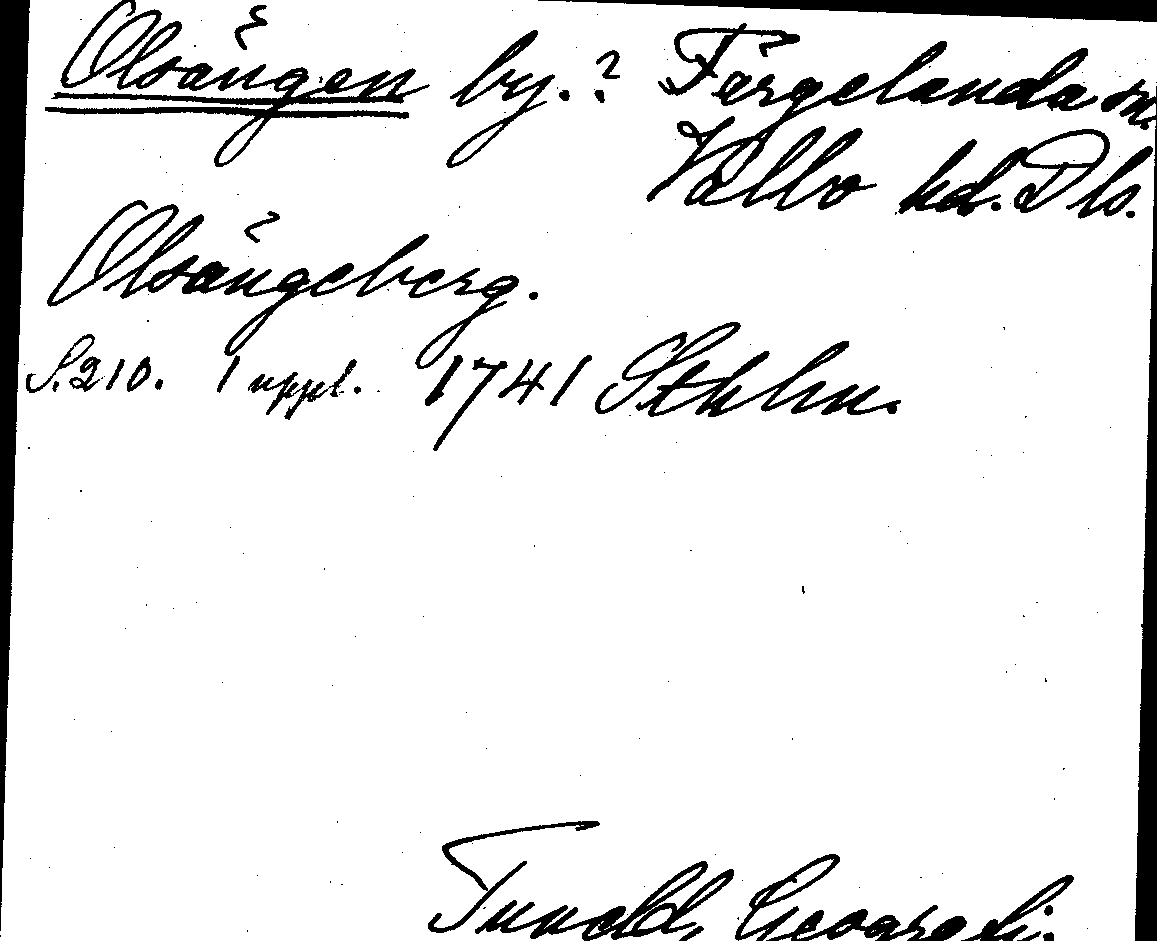 Olsängen by.? Färgelanda sn.
Valbo hd. Dls.
Olsängeberg.
S. 210. 1 uppl. 1741 Sthlm.
Tuneld, Geografi.